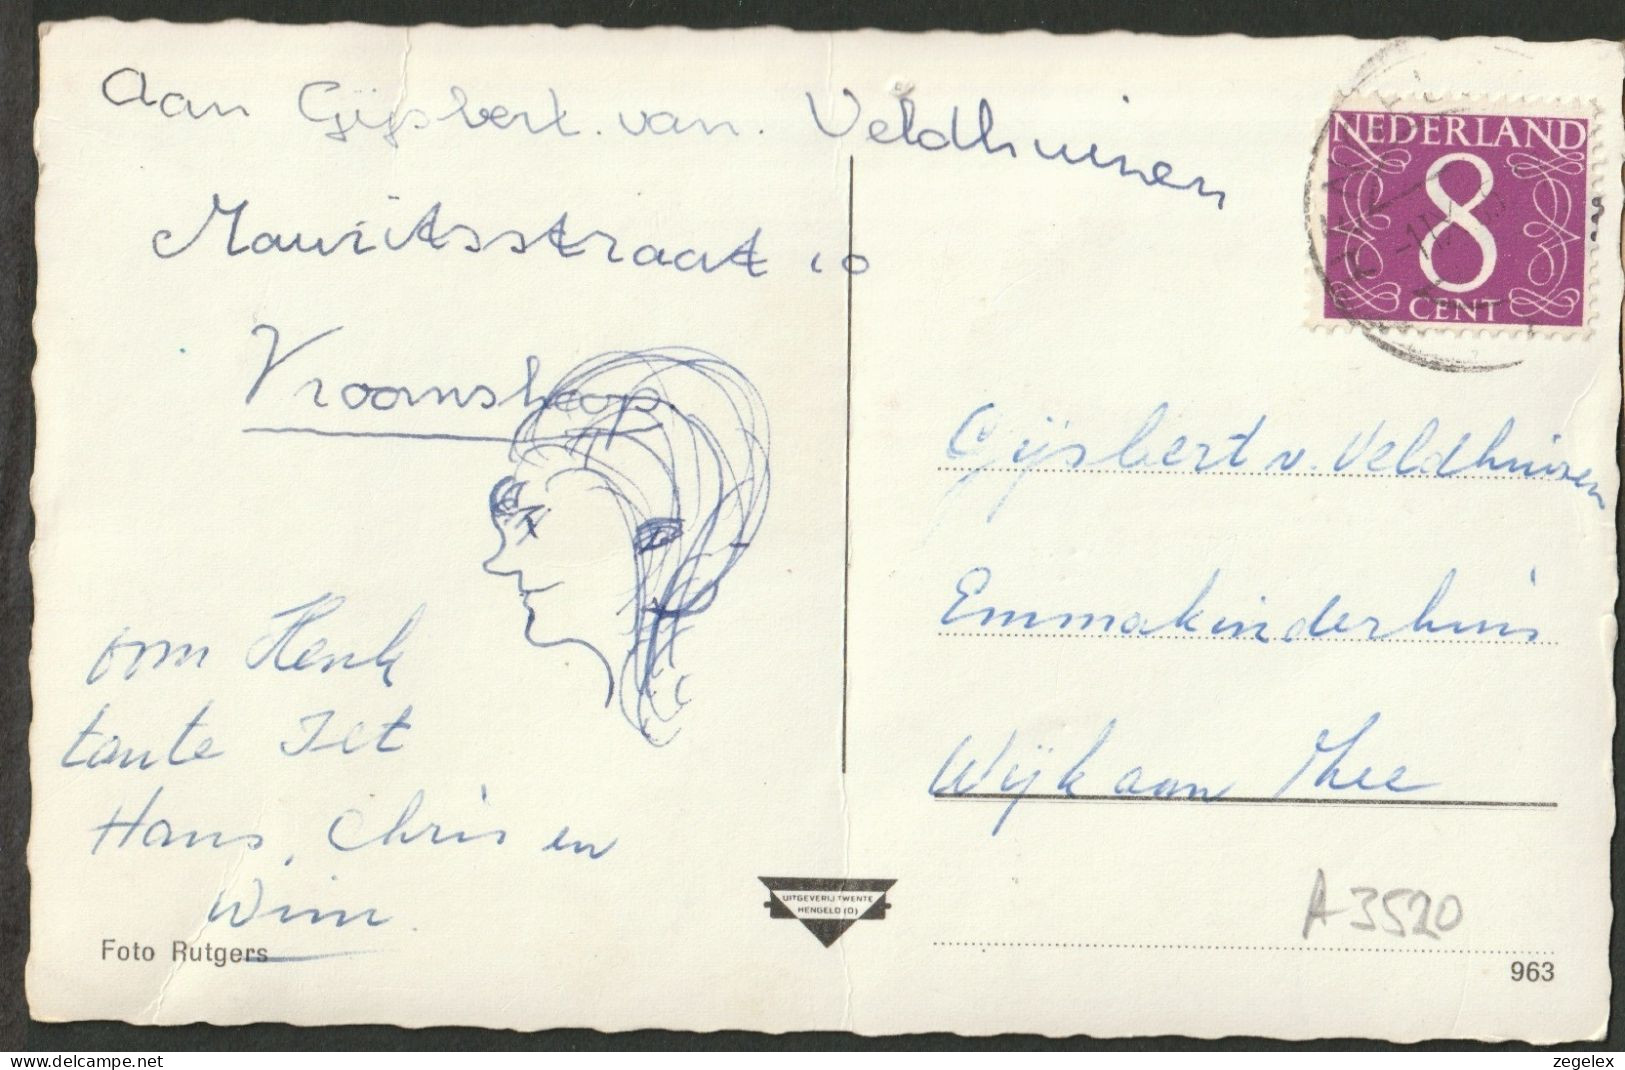 Aan Gijsbert van Veldhuizen
Mauritsstraat 10
Vroomshoop
oom Henk
tante Jet
Hans, Chris en
Wim.
Foto Rutgers
UITGEVERIJ TWENTE
HENGELO (O)
NEDERLAND
8
CENT
Gijsbert v. Veldhuizen
Emmakinderhuis
Wijk aan Zhee
A3520
963
zegelex